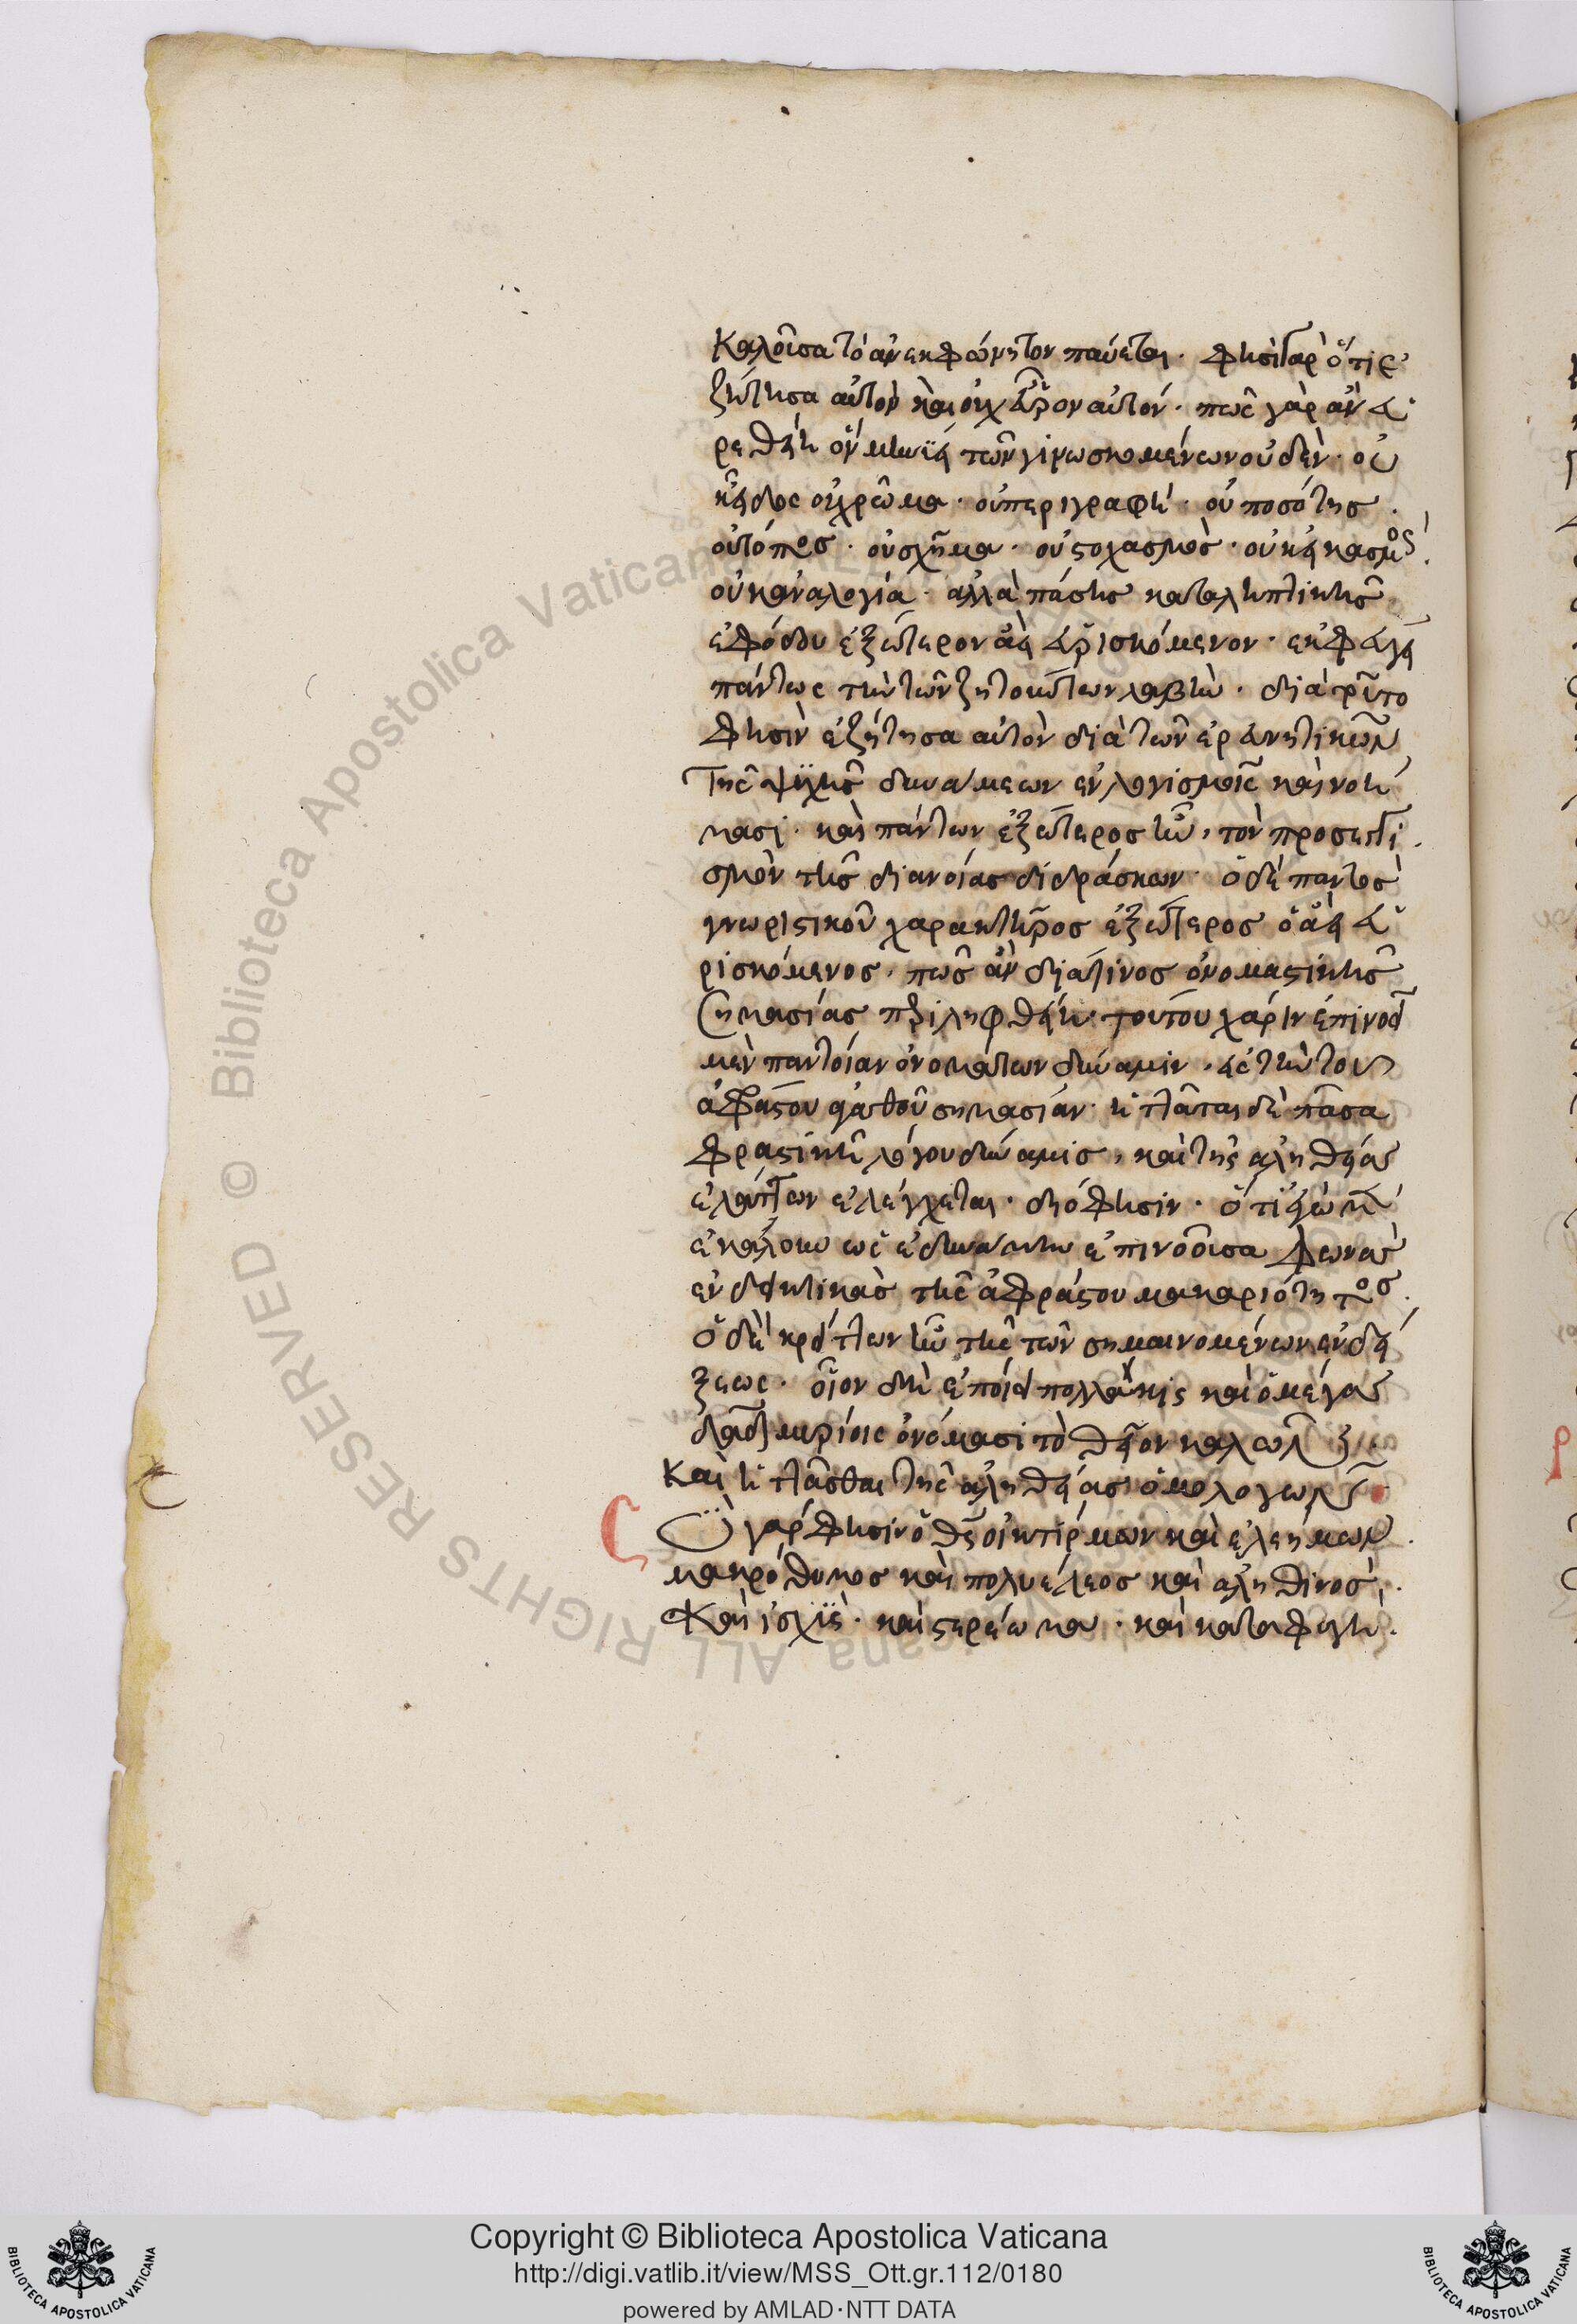 καλοῦσα τὸ ἀνεκφώνητον παύεται. φησὶ γὰρ ὅτι ἐ
ζήτησα αὐτὸν καὶ οὐχ εὗρον αὐτόν. πῶς γὰρ ἂν εὑ
ρεθείη ὃν μηνύει τῶν γινωσκομένων οὐδέν. οὐ
κ εἶδος οὐ χρῶμα. οὐ περιγραφή. οὐ ποσότης.
οὐ τόπος. οὐ σχῆμα. οὐ στοχασμός. οὐκ εἰκασμός.
οὐκ ἀναλογία. ἀλλὰ πάσης καταληπτικῆς
ἐφόδου ἐξώτερον ἀεὶ εὑρισκόμενον. ἐκφεύγει
πάντως τὴν τῶν ζητούντων λαβήν. διὰ τοῦτο
φησὶν ἐζήτησα αὐτὸν διὰ τῶν ἐρευνητικῶν
τῆς ψυχῆς δυνάμεων ἐν λογισμοῖς καὶ νοή
μασι. καὶ πάντων ἐξώτερος ἦν, τὸν προσεγγι
σμὸν τῆς διανοίας διδράσκων. ὁ δὲ παντὸς
γνωριστικοῦ χαρακτῆρος ἐξώτερος ὁ ἀεὶ εὑ
ρισκόμενος. πῶς ἂν διά τινος ὀνομαστικῆς
σημασίας περιληφθείη. τούτου χάριν ἐπινοεῖ
μὲν παντοίαν ὀνομάτων δύναμιν. εἰς τὴν τοῦ
ἀφράστου ἀγαθοῦ σημασίαν. ἡττᾶται δὲ πᾶσα
φραστικὴ λόγου δύναμις, καὶ τῆς ἀληθείας
ἐλάττων ἐλέγχεται. διό φησιν. ὅτι ἐγὼ μὲν
ἐκάλουν ὡς ἐδυνάμην ἐπινοοῦσα φωνὰς
ἐνδεικτικὰς τῆς ἀφράστου μακαριότητος.
ὁ δὲ κρείττων ἦν τῆς τῶν σημαινομένων ἐνδεί
ξεως. οἷον δὴ ἐποίει πολλάκις καὶ ὁ μέγας
δαδ μυρίοις ὀνόμασι τὸ θεῖον καλῶν
καὶ ἡττᾶσθαι τῆς ἀληθείας ὁμολογῶν
Σὺ γάρ φησιν ὁ θς οἰκτίρμων καὶ ἐλεήμων.
μακρόθυμος καὶ πολυέλεος καὶ ἀληθινός.
Καὶ ἰσχὺς. καὶ στερέωμα. καὶ καταφυγή.
Copyright © Biblioteca Apostolica Vaticana
http://digi.vatlib.it/view/MSS_Ott.gr.112/0180
powered by AMLAD·NTT DATA